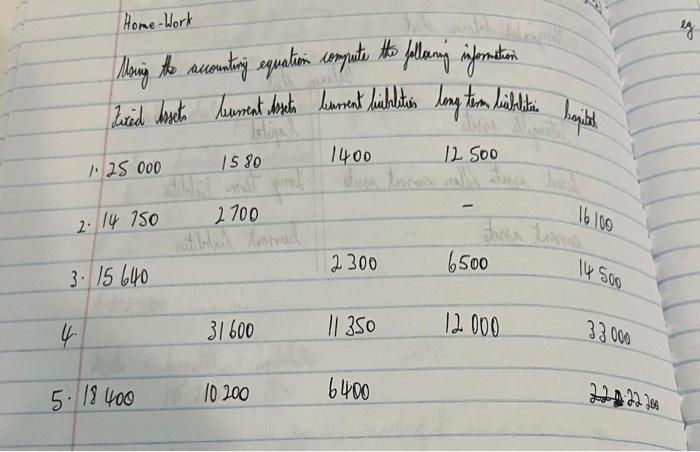 Home-Work
eg
Using the accounting equation compute the following information
Fixed Assets Current Assets Current liabilities Long term liabilities Capital
1. 25 000 1580 1400 12 500
2. 14 750 2700 - 16 100
3. 15 640 2 300 6500 14 500
4. 31 600 11 350 12 000 33 000
5. 18 400 10 200 6400 22 200